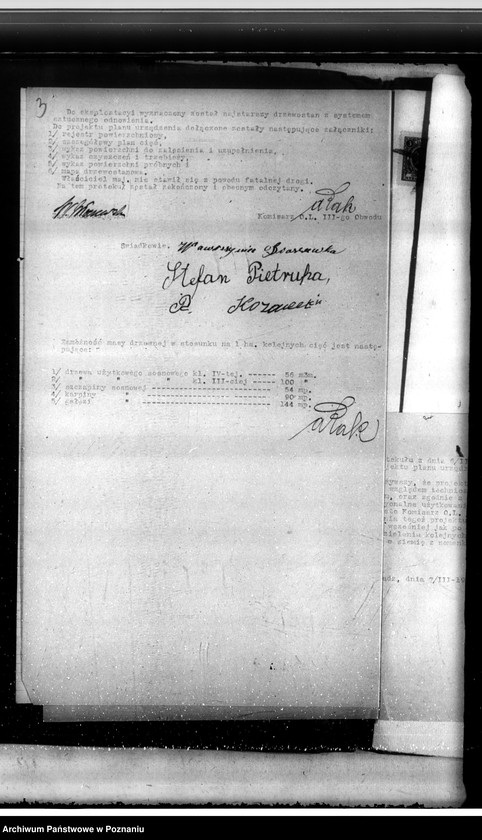 3
Do eksploatacyi wyznaczony został najstarszy drzewostan z systemem
sztucznego odnowienia.
Do projektu planu urządzenia dołączone zostały następujące załączniki:
1/ rejestr powierzchniowy,
2/ szczegółowy plan cięć,
3/ wykaz powierzchni do zalesienia i uzupełnienia,
4/ wykaz czyszczeń i trzebieży,
5/ wykaz powierzchni próbnych i
6/ mapa drzewostanowa.
Właściciel maj. nie zjawił się z powodu fatalnej drogi.
Na tem protokuł został zakończony i obecnym odczytany.
Komisarz O.L. III-go Obwodu
Świadkowie:
Stefan Pietrucha,
P.
Zamożność masy drzewnej w stosunku na 1 ha. kolejnych cięć jest nastę-
pująca:
1/ drzewa użytkowego sosnowego kl. IV-tej. ----- 56 mtm.
2/ " " " kl. III-ciej ----- 100 "
3/ szczapiny sosnowej ----- 54 mp.
4/ karpiny " ----- 90 mp.
5/ gałęzi " ----- 144 mp.
okułu z dnia
jektu planu urządz
że projekt
względem technicz
oraz zgodnie z
Komisarz O.L.
tegoż projektu
jak po
kolejnych
dnia 2/III-19
Archiwum Państwowe w Poznaniu